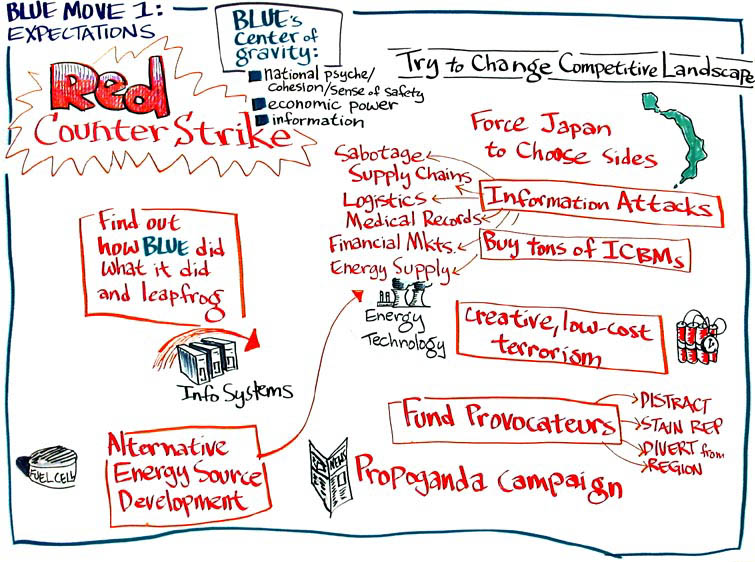 BLUE MOVE 1:
EXPECTATIONS
BLUE's
center of
gravity:
national psyche/
cohesion/sense of safety
economic power
information
Try to Change Competitive Landscape
Red
Counter Strike
Force Japan
to Choose Sides
Sabotage
Supply Chains
Logistics
Medical Records
Financial Mkts.
Energy Supply
Information Attacks
Buy tons of ICBMs
Find out
how BLUE did
what it did
and leapfrog
Energy
Technology
creative, low-cost
terrorism
Info Systems
Fund Provocateurs
DISTRACT
STAIN REP
DIVERT from
REGION
Alternative
Energy Source
Development
FUEL CELL
NEWS
Propoganda Campaign